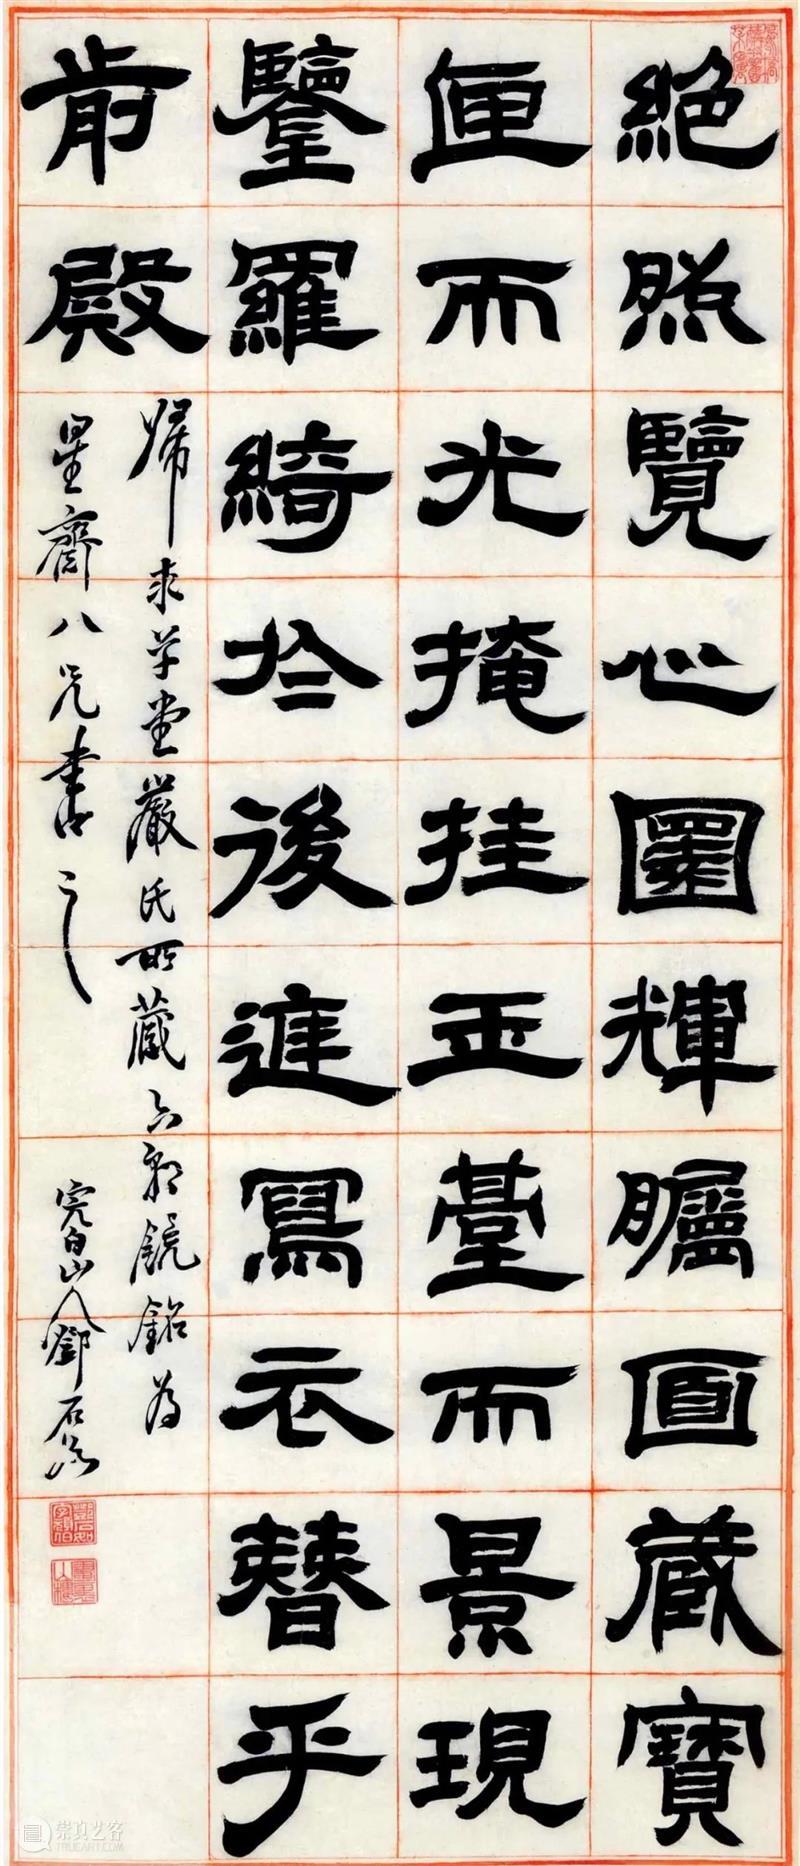 絕照覽心圜輝矚面藏寶
匣而光掩挂玉臺而景現
鑒羅綺於後庭寫衣簪乎
前殿
歸求草堂嚴氏所藏六朝鏡銘為
星齋八兄書之
完白山人鄧石如
崇真艺客
TRUEART.COM